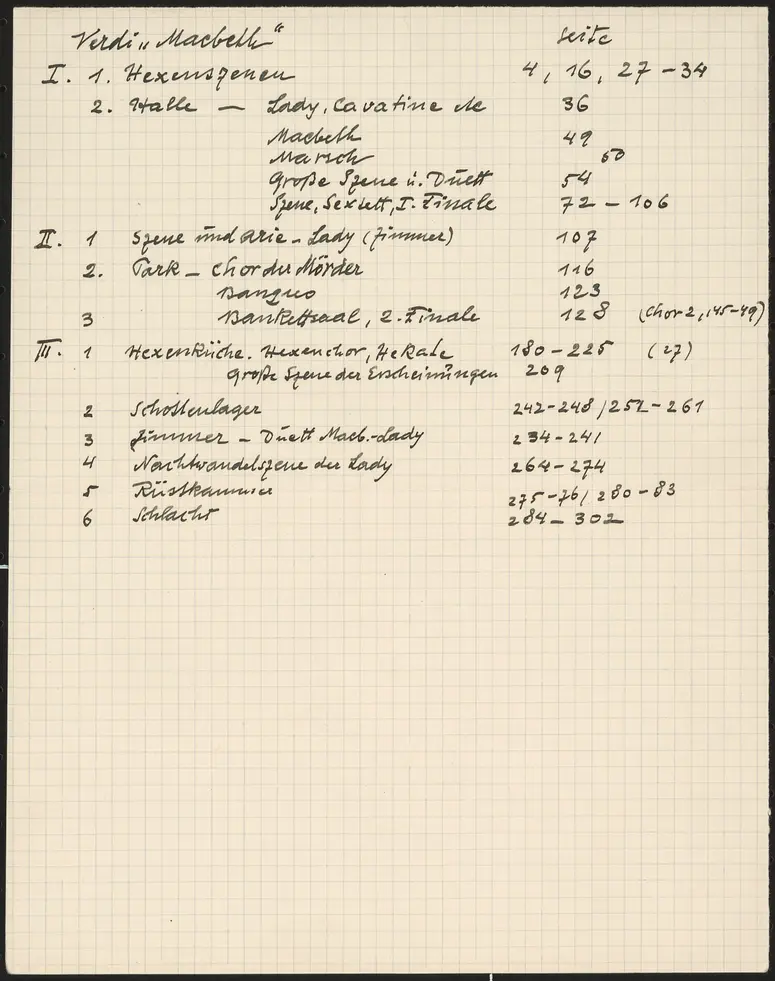 Verdi „Macbeth“ Seite
I. 1. Hexenszenen 4, 16, 27 – 34
2. Halle – Lady, Cavatine etc 36
Macbeth 49
Marsch 50
Große Szene u. Duett 54
Szene, Sextett, I. Finale 72 – 106
II. 1 Szene und Arie – Lady (Zimmer) 107
2. Park – Chor der Mörder 116
Banquo 123
3 Bankettsaal, 2. Finale 128 (Chor 2, 145–49)
III. 1 Hexenküche. Hexenchor, Hekate 180 – 225 (27)
Große Szene der Erscheinungen 209
2 Schottenlager 242–248 / 251 – 261
3 Zimmer – Duett Macb.-Lady 234–241
4 Nachtwandelszene der Lady 264–274
5 Rüstkammer 275–76 / 280–83
6 Schlacht 284 – 302